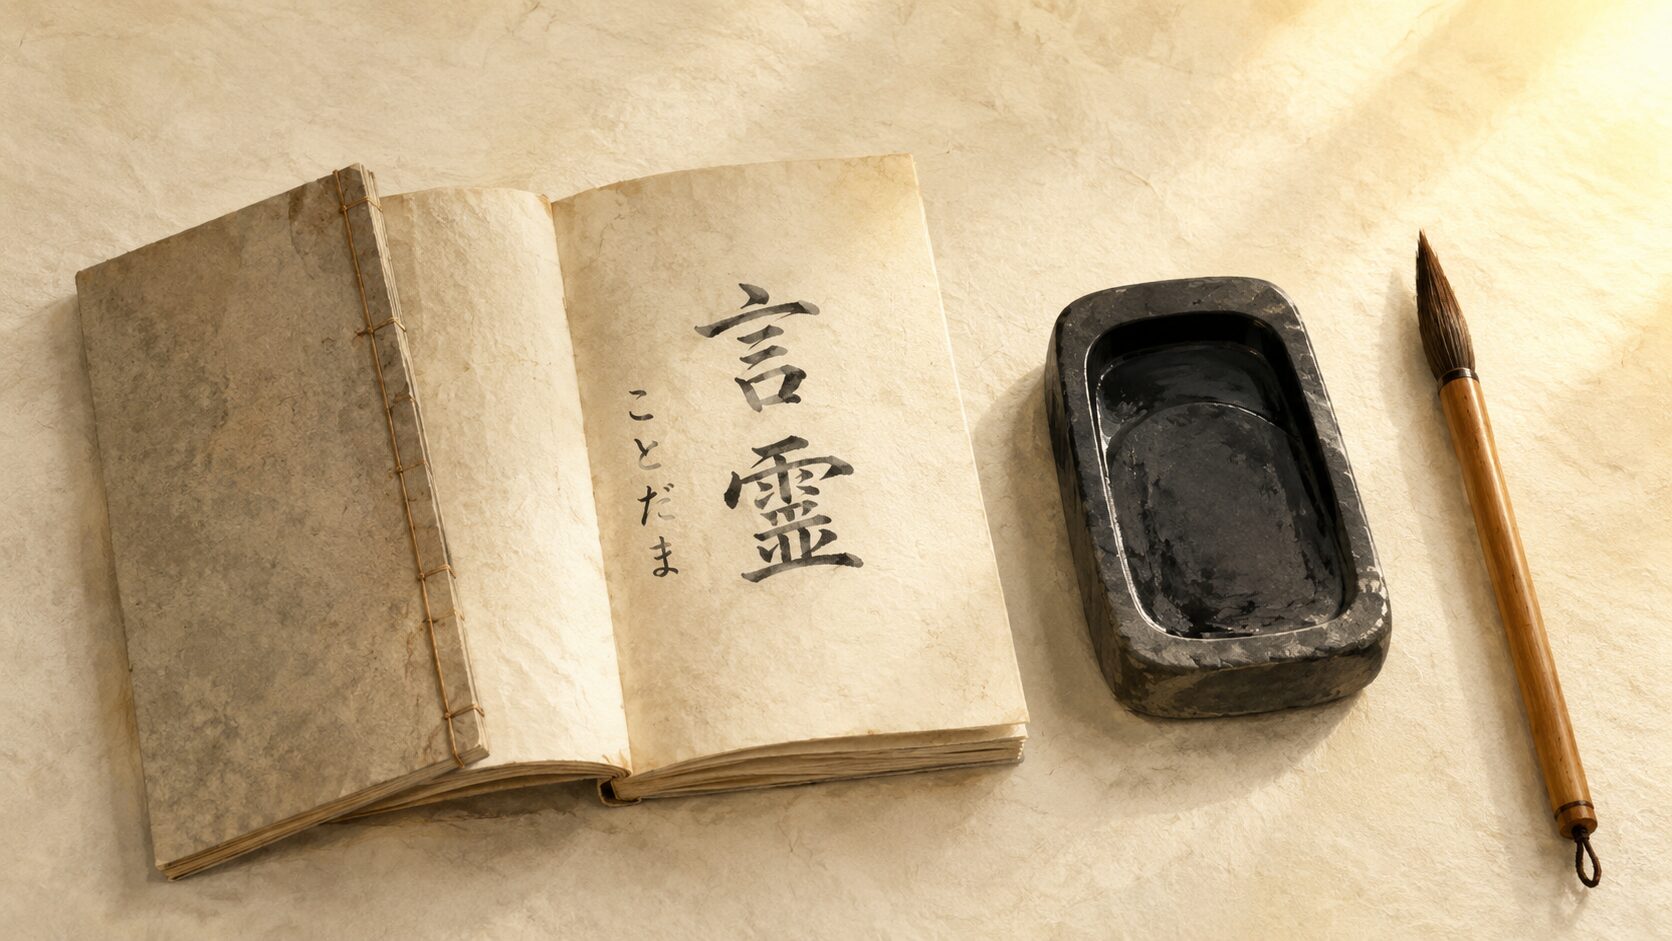 言霊
ことだま